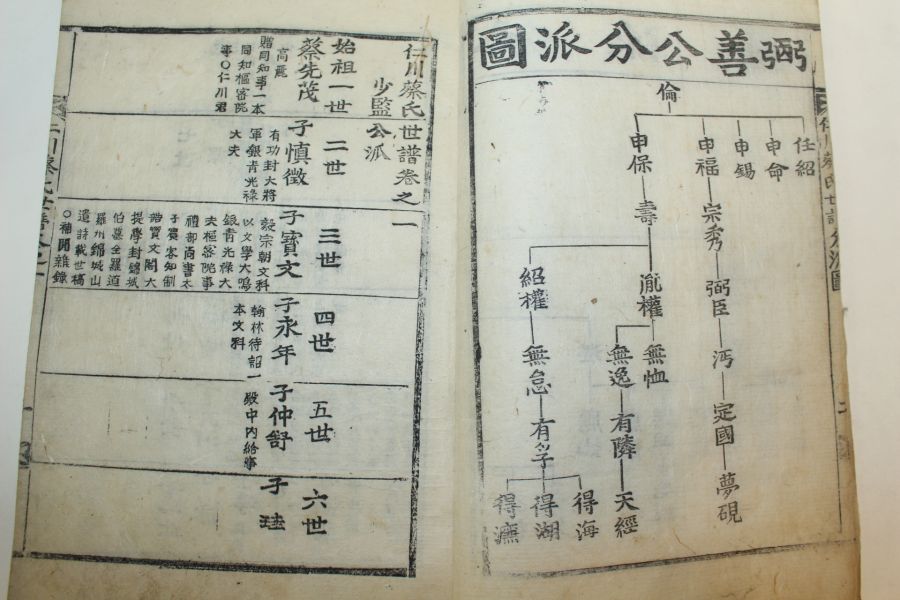 弼善公分派圖
倫
任紹
申命
申錫
申福
申保
宗秀
壽
弼臣
胤權
紹權
沔
無恤
無逸
無怠
定國
有隣
有孚
夢硯
天經
得海
得湖
得濂
仁川蔡氏世譜卷之一
少監公派
始祖一世
蔡先茂
高麗
贈同知事一本
同知樞密院
事○仁川君
二世
子愼徵
有功封大將
軍銀靑光祿
大夫
三世
子寶文
毅宗朝文科
以文學大鳴
銀靑光祿大
夫樞密院事
禮部尙書太
子賓客知制
誥寶文閣大
提學封錦城
伯墓全羅道
羅州錦城山
遺詩載世稿
○補閒雜錄
四世
子永年
翰林待詔一
本文科
五世
子仲舒
殿中內給事
六世
子